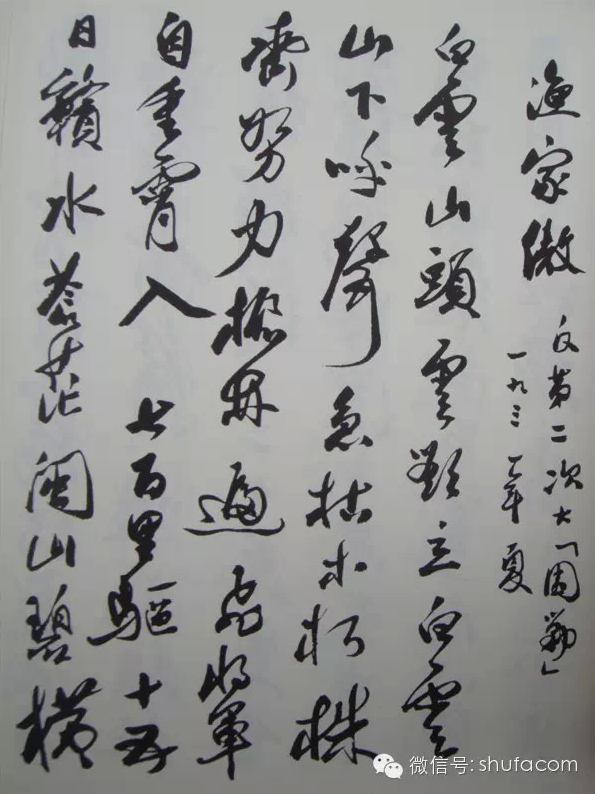 漁家傲
反第二次大「圍勦」
一九三一年夏
白雲山頭雲欲立白雲
山下呼聲急枯木朽株
齊努力槍林逼飛將軍
自重霄入 七百里驅十五
日贛水蒼茫閩山碧橫
微信号: shufacom